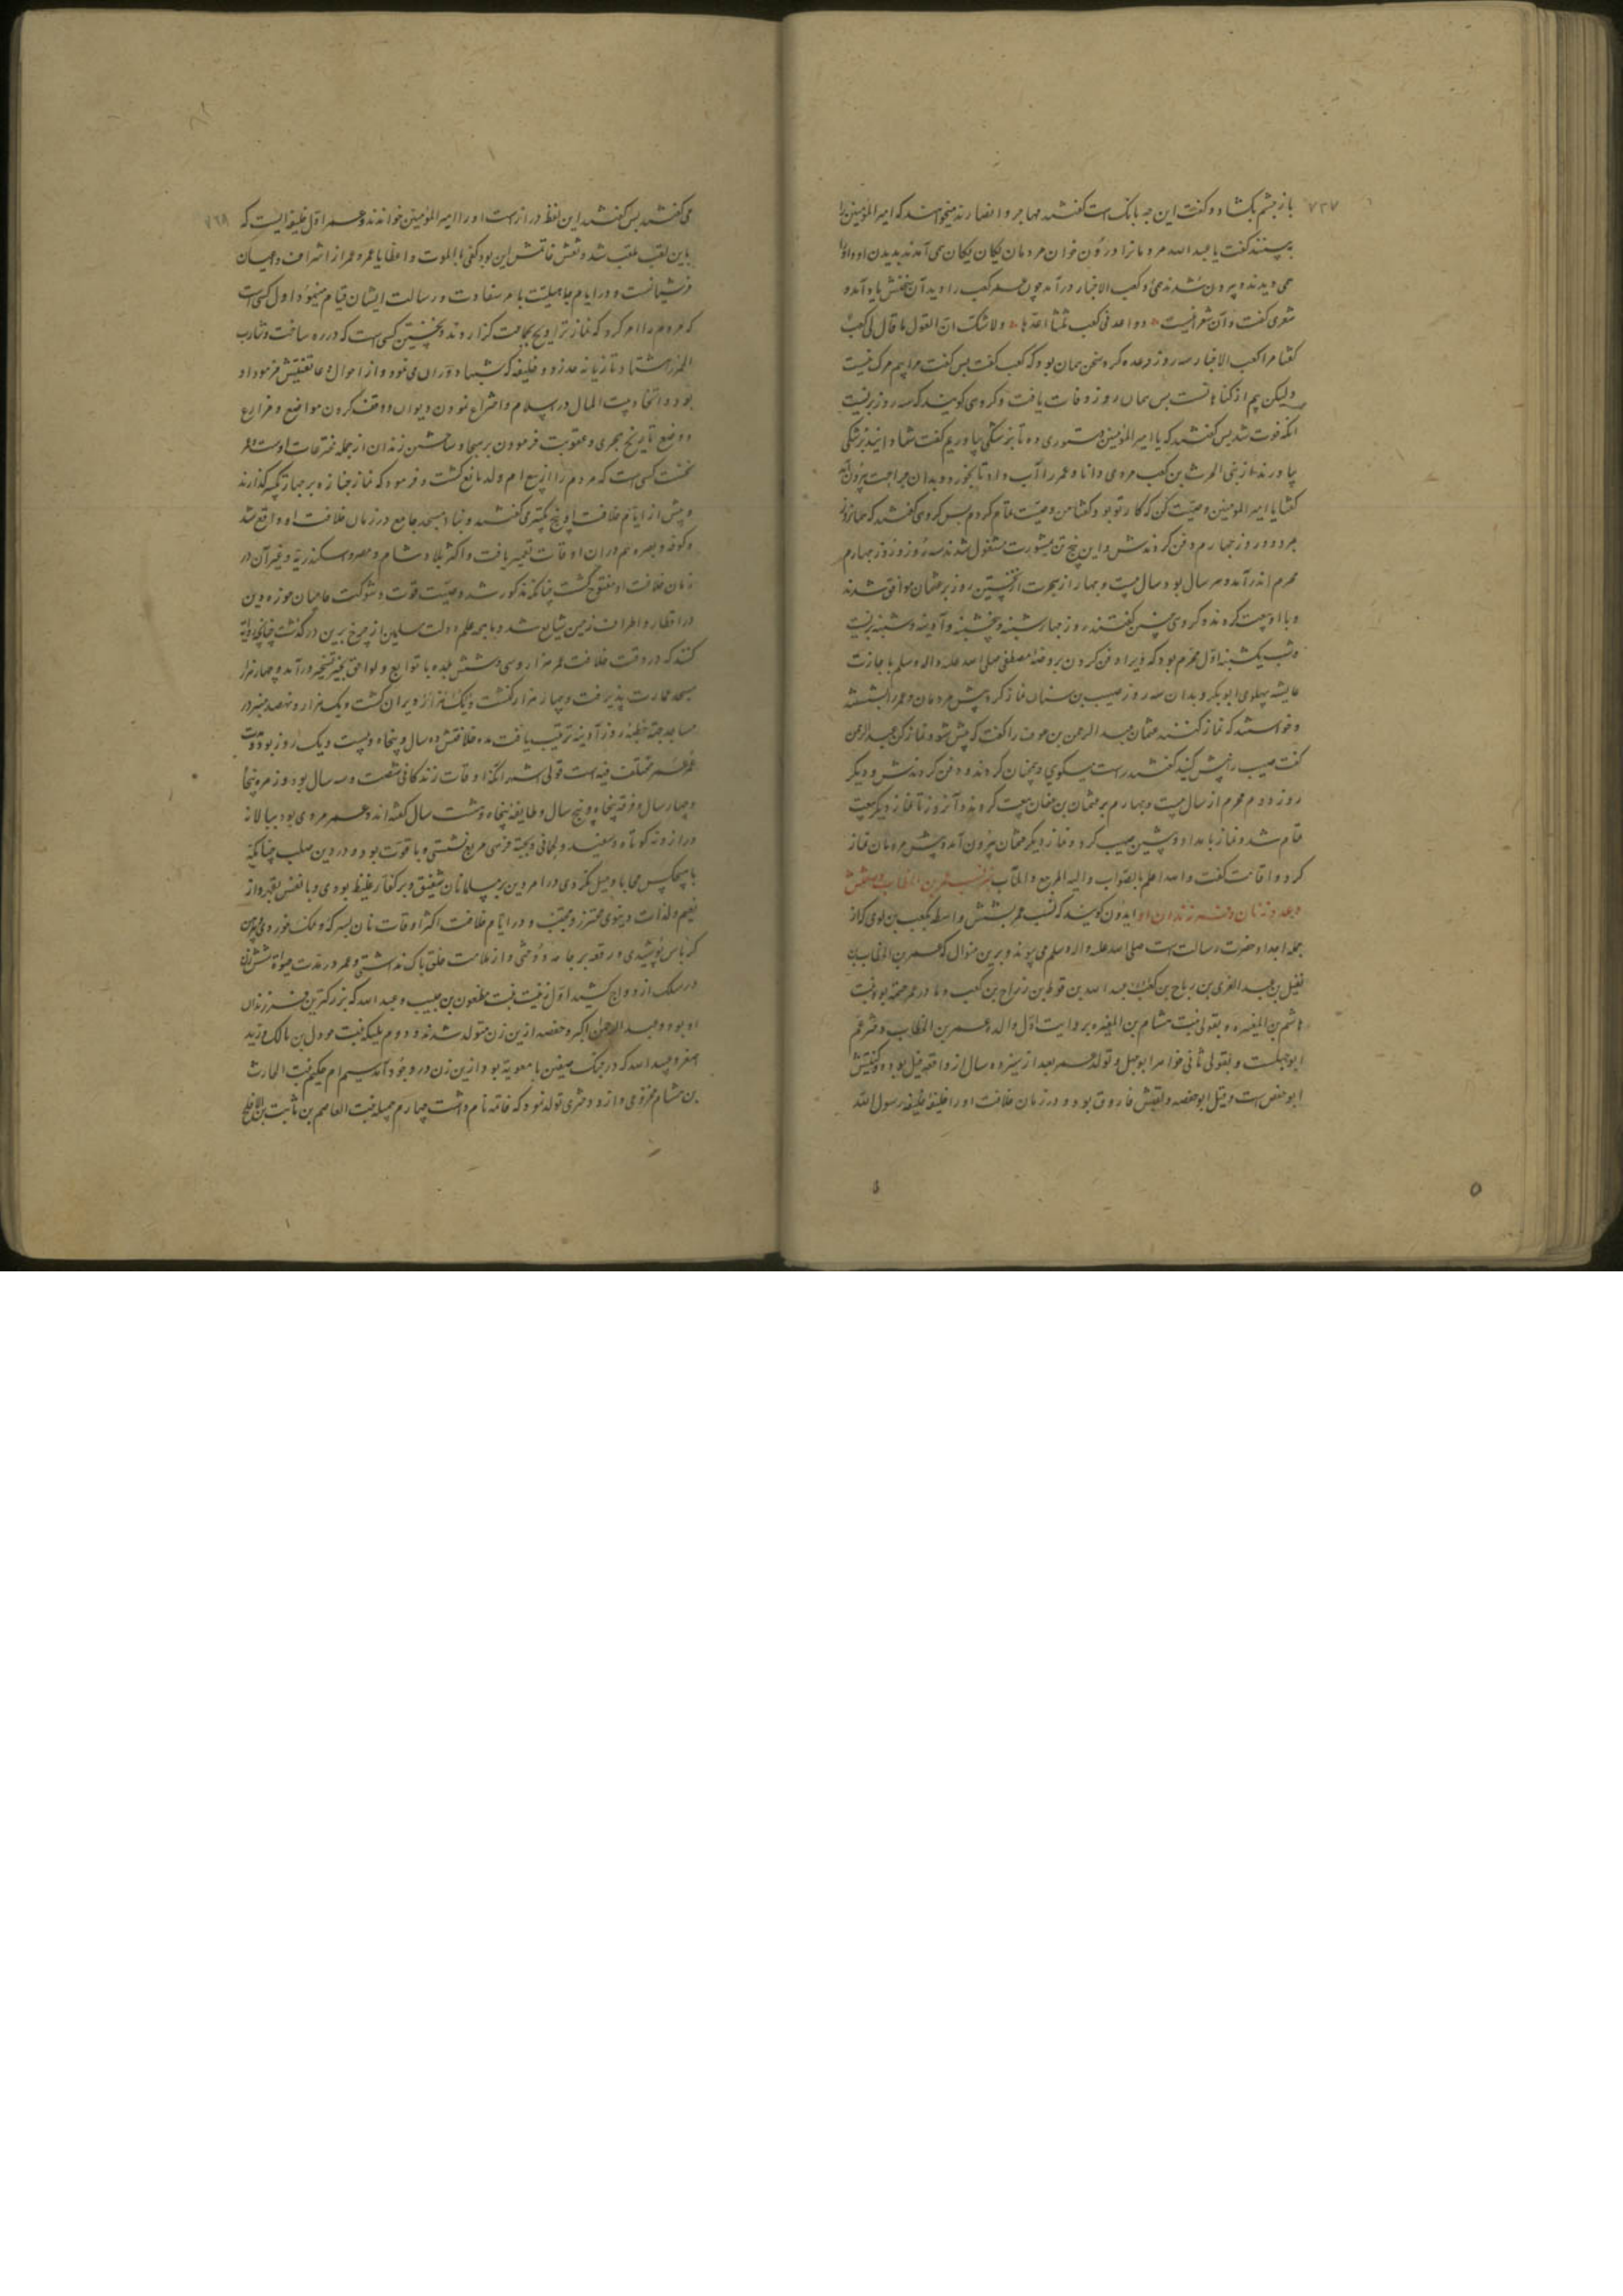 باز چشم بگشاد و گفت این چه بانگ است گفتند مهاجر و انصارند میخواهند که امیر المؤمنین را ۷۲۷
به بینند گفت یا عبد الله مردمانرا در ون خوان مردمان یکان یکان می آمدند بدیدن او و او را
می دیدند و بیرون شدند و کعب الاخبار درآمد چون عمر کعب را دید آن سخنش یاد آمد و
شعری گفت و آن شعر اینست و واعدنی کعب ثلثا اعدها ولا شک ان القول ما قال لی کعب
گفتا مرا کعب الاخبار سه روز وعده کرد سخن همان بود که کعب گفت پس گفت مرا بیم مرگ نیست
ولیکن بیم از گناهانست پس همان روز وفات یافت و گروهی گویند که سه روز بزیست
آنکه فوت شد پس گفتند که یا امیر المؤمنین دستوری ده تا پزشکی بیاوریم گفت شما دانید پزشکی
بیاوردند از بنی الحرث بن کعب مردی دانا و عمر را آب داد تا بخورد و بدان جراحت بیرون آمد
گفتا یا امیر المؤمنین وصیت کن که کار تو بود گفتا من وصیت تمام کردم پس گروهی گفتند که همانروز
بمرد و روز چهارم دفن کردندش و این پنج تن بمشورت مشغول شدند سه روز و روز چهارم
محرم اندر آمد و سر سال بود سال بیست و چهار از هجرت نخستین روز بر عثمان موافق شدند
و با او بیعت کردند و گروهی چنین گفتند روز چهارشنبه و پنجشنبه و آدینه و شنبه بزیست
و شب یکشنبه اول محرم بود که ویرا دفن کردن بروضه مصطفی صلی الله علیه واله وسلم باجازت
عایشه پهلوی ابوبکر و بدان سه روز صهیب بن سنان نماز کرد پیش مردمان و عمر را بشستند
و خواستند که نماز کنند عثمان عبد الرحمن بن عوف را گفت که پیش شو و نماز کن عبد الرحمن
گفت صهیب را پیش کنید گفتند راست میگویی همچنان کردند و دفن کردندش و دیگر
روز دوم محرم از سال بیست و چهارم بر عثمان بن عفان بیعت کردند و آنروز تا نماز دیگر بیعت
تمام شد و نماز بامداد و پشین صهیب کرد و نماز دیگر عثمان بیرون آمد و پیش مردمان نماز
کرد و اقامت گفت والله اعلم بالصواب والیه المرجع والمآب ذکر نسب عمر بن الخطاب و
و عدد زنان و فرزندان او ایدون گویند که نسب عمر بشش واسطه بکعب بن لوی که از
جمله اجداد حضرت رسالت است صلی الله علیه واله وسلم می پیوندد برین منوال که عمر بن الخطاب بن
نفیل بن عبد العزی بن ریاح بن عبد الله بن قرط بن رزاح بن کعب و مادر عمر حنتمه بود بنت
هاشم بن المغیره و بقولی بنت هشام بن المغیره بروایت اول والده عمر بن الخطاب دختر عم
ابوجهلست و بقولی ثانی خواهر ابوجهل و تولد عمر بعد از سیزده سال از واقعه فیل بوده و کنیتش
ابوحفص است و قیل ابوحفصه و لقبش فاروق بود و در زمان خلافت او را خلیفه خلیفه رسول الله
می گفتند پس گفتند این لفظ دراز است او را امیر المؤمنین خواندند و عمر اول خلیفه ایست که ۷۶۸
باین لقب ملقب شد و نقش خاتمش این بود کفی بالموت واعظا یا عمر و عمر از اشراف و اعیان
قریشیانست و در ایام جاهلیت بامر سفارت و رسالت ایشان قیام مینمود و اول کسی است
که مردم را امر کرد که نماز تراویح بجماعت گزاردند و نخستین کسی است که دره ساخت و شارب
الخمر را هشتاد تازیانه حد زد و خلیفه که شبها دوران می نمود و از احوال رعایا تفتیش فرمود او
بود و اتخاذ بیت المال در اسلام و اختراع نمودن دیوان و وقف کردن مواضع و مزارع
و وضع تاریخ هجری و عقوبت فرمودن بر هجا و ساختن زندان از جمله مخترعات اوست و عمر
نخست کسی است که مردم را از بیع ام ولد مانع گشت و فرمود که نماز جنازه بر چهار تکبیر گذارند
و پیش از ایام خلافت او پنج تکبیر می گفتند و بنیاد مسجد جامع در زمان خلافت او واقع شد
و کوفه و بصره هم در ان اوقات تعمیر یافت و اکثر بلاد شام و مصر و اسکندریه و غیر آن در
زمان خلافت او مفتوح گشت چنانکه مذکور شد و صیت قوت و شوکت حامیان حوزه دین
در اقطار و اطراف زمین شایع شد و پایه علم دولت مسلمین از چرخ برین درگذشت چنانچه
کنند که در وقت خلافت عمر هزار و سی و شش بلده با توابع و لواحق بحیز تسخیر درآمد و چهار هزار
مسجد عمارت پذیرفت و چهار هزار کنشت ویران گشت و یک هزار و نهصد منبر در
مساجد جهت خطبه روز آدینه ترتیب یافت مده خلافتش ده سال و پنجاه و بیست و یک روز بود و مدت
عمر عمر مختلف فیه است قولی اشهر آنکه اوقات زندگانی شصت و سه سال بود و زمره پنجاه
و چهار سال و فرقه پنجاه و پنج سال و طایفه پنجاه و هشت سال گفته اند و عمر مردی بود ببالا نه
دراز و نه کوتاه و سفید و بجبه فرشی مربع نشستی و با قوت بود و در دین صلب چنانکه
با هیچکس محابا و میل نکردی در امر دین بر مسلمانان شفیق و بر کفار غلیظ بودی و با نفس
نعیم و لذات دنیوی محترز و مجتنب و در ایام خلافت اکثر اوقات نان بسرکه و نمک خوردی
کرباس پوشیدی و رقعه بر جامه دوختی و از ملامت خلق باک نداشتی و عمر در مدت حیوة شش زن
در سلک ازدواج کشید اول زینب بنت مظعون بن حبیب و عبد الله که بزرگترین فرزندان
او بود و عبد الرحمن اکبر و حفصه ازین زن متولد شدند و دوم ملیکه بنت جرول بن مالک و زید
اصغر و عبید الله که در جنگ صفین با معویه بود ازین زن در وجود آمد سیم ام حکیم بنت الحارث
بن هشام مخزومی و ازو دختری تولد نمود که فاطمه نام داشت چهارم جمیله بنت العاصم بن ثابت بن ابی الافلح